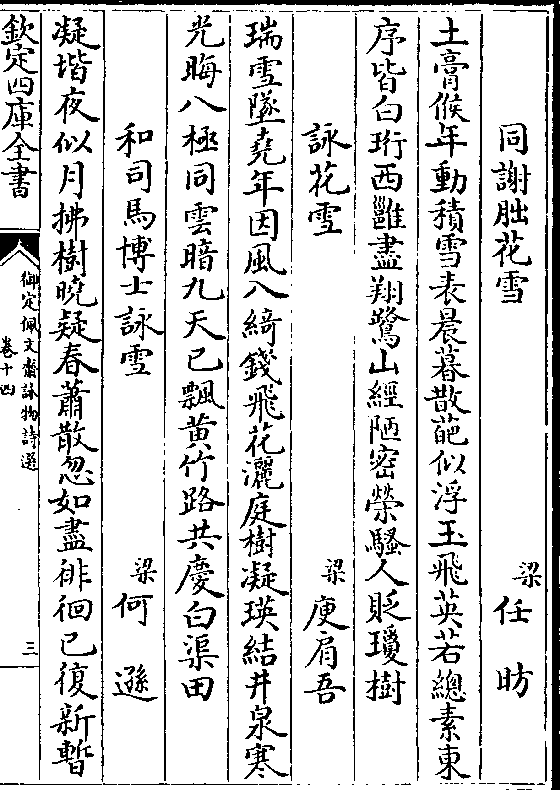 同謝朏花雪　梁任昉
土膏候年動積雪表晨暮散葩似浮玉飛英若總素東
序皆白珩西雝盡翔鷺山經陋密榮騷人貶瓊樹
詠花雪　梁庾肩吾
瑞雪墜堯年因風入綺錢飛花灑庭樹凝瑛結井泉寒
光晦八極同雲暗九天已飄黄竹路共慶白渠田
和司馬博士詠雪　梁何遜
凝堦夜似月拂樹曉疑春蕭散忽如盡徘徊已復新暫
欽定四庫全書
御定佩文齋詠物詩選
卷十四
三